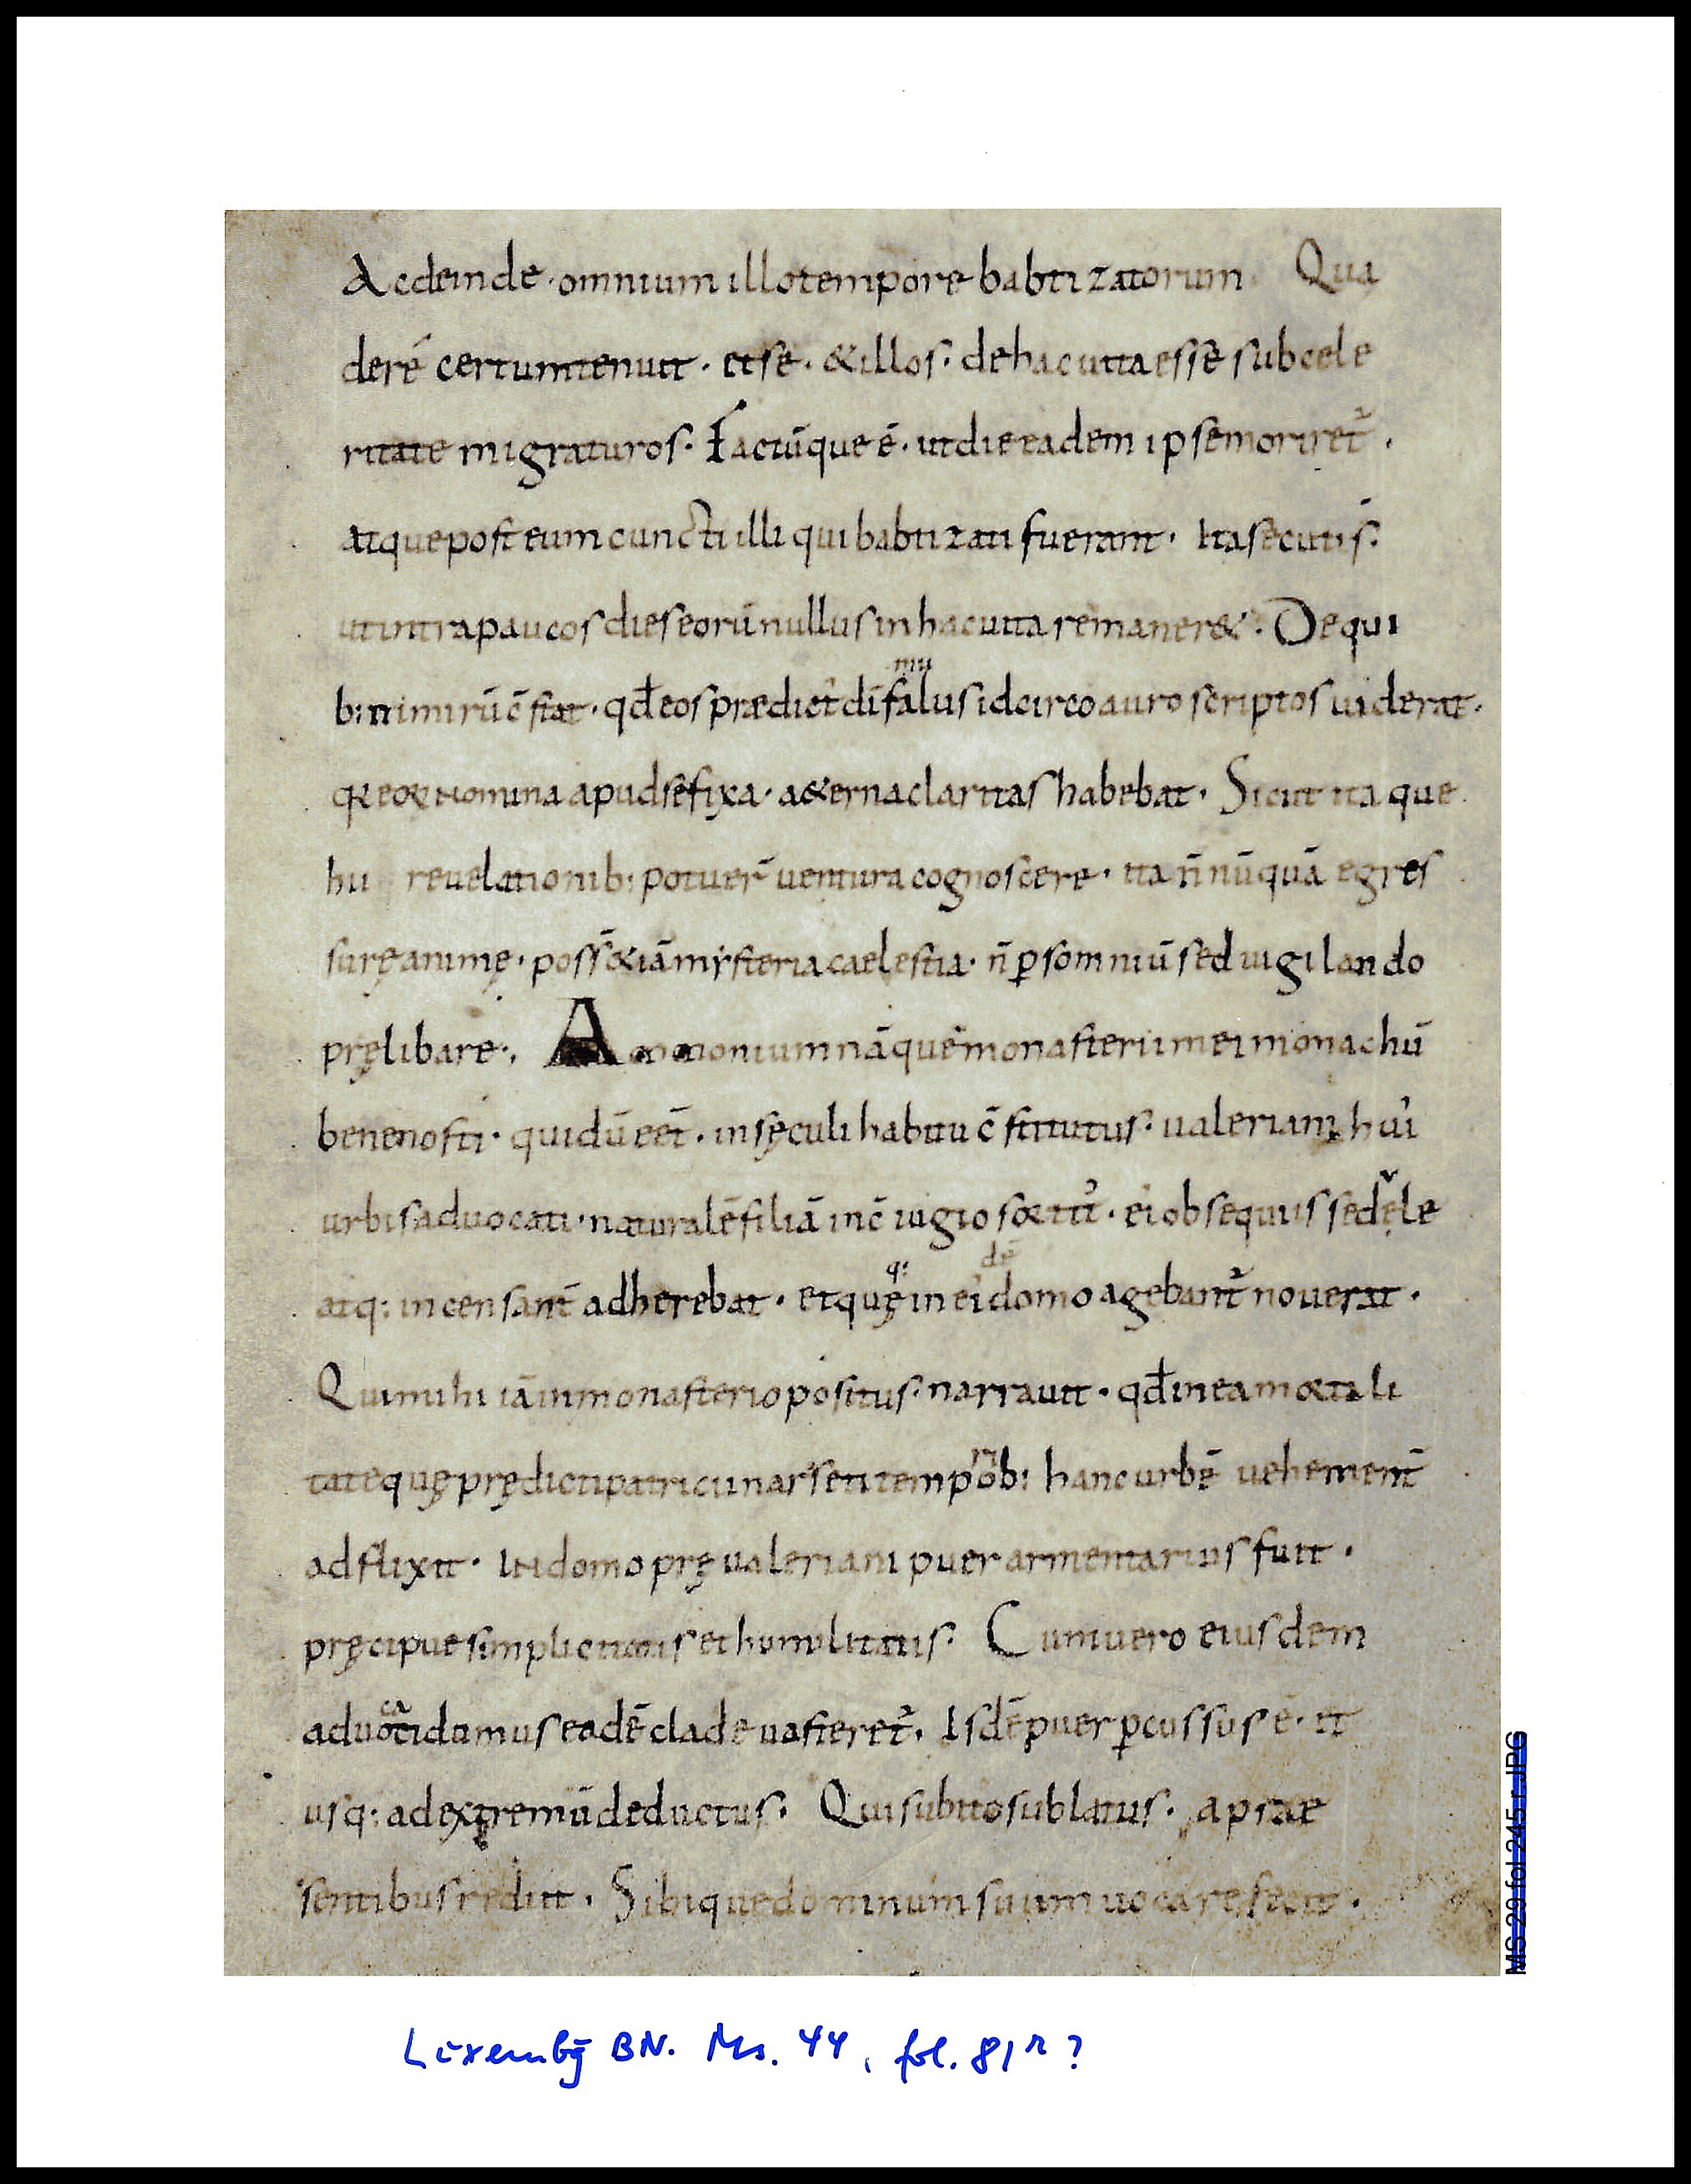 Ac deinde · omnium illo tempore babtizatorum. Qua
de re certum tenuit · et se · & illos · de hac uita esse sub cele
ritate migraturos · Factūque ē · ut die eadem ipse moriret᷑ ·
atque post eum cuncti illi qui babtizati fuerant · Ita secuti s̄ ·
ut intra paucos dies eorū nullus in hac uita remaner& · De qui
b: nimirū c̄stat · qđ eos prædict' dī famulus idcirco auro scriptos uiderat ·
eoꝝ nomina apud se fixa · a&erna claritas habebat · Sicut itaque
hii reuelationib: potuer̄ uentura cognoscere · ita n̄nūquā egres
surę animę · poss̄ &iā mysteria caelestia · n̄ ꝑ somniū sed uigilando
prelibare ·, Ammonium nāque monasterii mei monachū
bene nosti · qui dū eēt · in sęculi habitu c̄stitutus · ualeriani hui'
urbis aduocati · naturalē filiā in c̄iugio ei' obsequiis sedule
atq: incensant̄ adherebat · et quęq: in ei'dē domo agebant᷑ nouerat ·
Qui mihi iā in monasterio positus · narrauit · qđ in ea mortali
tate quę prędicti patricii narseti temporib: hanc urbē uehement̄
adflixit · In domo prę ualeriani puer armentarius fuit ·
pręcipue simplicitatis et humilitatis · Cum uero eiusdem
aduocati domus eadē clade uasteret᷑ · Isdē puer ꝑcussus ē · et
usq: ad extremū deductus · Qui subito sublatus · a prae
sentibus rediit · Sibique dominum suum uocare fecit ·
MS 29 fol 245 r.JPG
Luxembg BN. Ms. 44, fol. 81r ?